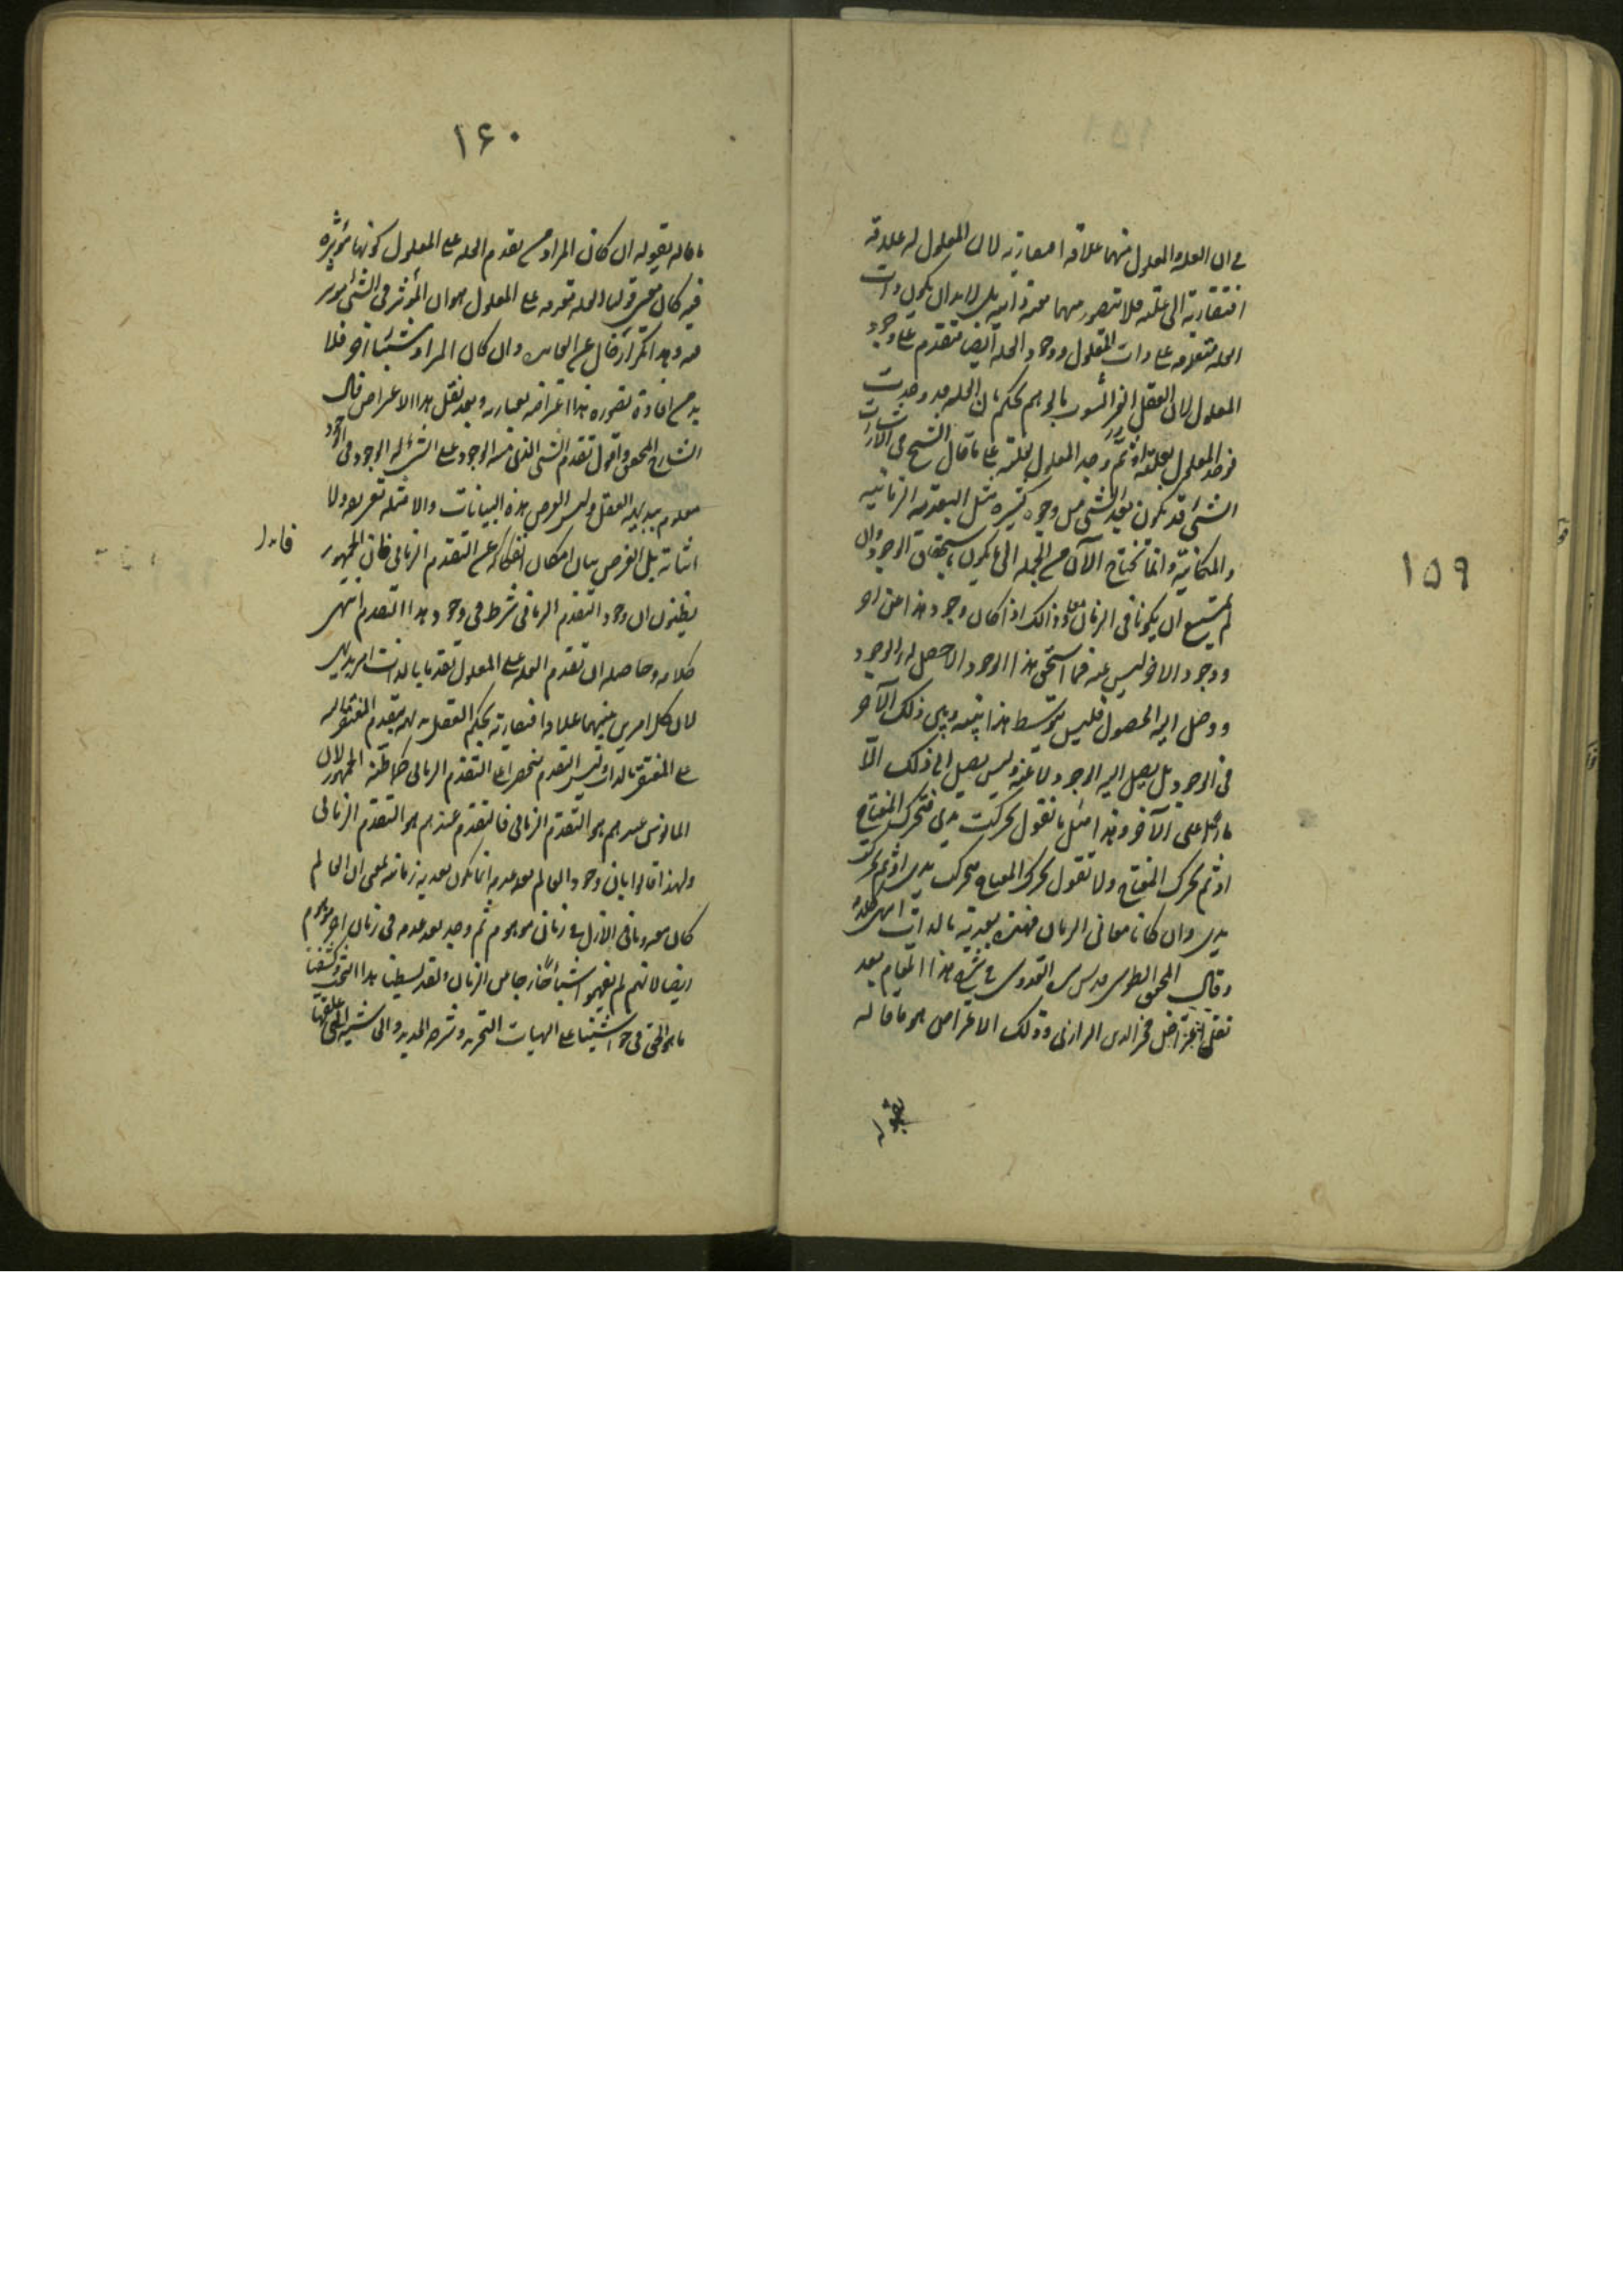 ١٥٩
في ان العلة والمعلول بينهما علاقة افتقارية لان المعلول له علاقة
افتقارية الى علته فلا تتصور بينهما معية ذاتية بل لا بد ان يكون ذات
العلة متقدمة على ذات المعلول ووجود العلة ايضا متقدم على وجود
المعلول لان العقل الغير المشوب بالوهم يحكم بان العلة قد وجدت
فوجد المعلول بعلته او ثم وجد المعلول بعلته على ما قال الشيخ في الاشارات
الشئ قد يكون بعد الشئ من وجوه كثيرة مثل البعدية الزمانية
والمكانية وانما نحتاج الآن من الجملة الى ما يكون باستحقاق الوجود وان
لم يمتنع ان يكونا في الزمان معا وذلك اذا كان وجود هذا عن آخر
ووجود الاخر ليس عنه فما استحق هذا الوجود الا حصل له الوجود
ووصل اليه الحصول فليس يتوسط هذا بينه وبين ذلك الآخر
في الوجود بل يصل اليه الوجود لا عنه وليس يصل الى ذلك الا
مارا على الآخر وهذا مثل ما نقول تحركت يدي فتحرك المفتاح
او ثم تحرك المفتاح ولا نقول تحرك المفتاح فتحركت يدي او ثم تحركت
يدي وان كانا معا في الزمان فهذه بعدية بالذات انتهى كلامه
وقال المحقق الطوسي قدس سره القدوسي في شرح هذا المقام بعد
نقل اعتراض فخر الدين الرازي وذلك الاعتراض هو ما قاله
بقوله
١۶٠
ما قاله بقوله ان كان المراد من تقدم العلة على المعلول كونها مؤثرة
فيه كان معنى قولنا العلة متقدمة على المعلول هو ان المؤثر في الشئ مؤثر
فيه وهذا تكرار خال عن الفائدة وان كان المراد شيئا آخر فلا
بد من افادة تصوره هذا اعتراضه بعبارته وبعد نقل هذا الاعتراض قال
الشارح المحقق واقول تقدم الشئ الذي منه الوجود على الشئ له الوجود في الوجود
معلوم ببديهة العقل وليس الغرض بهذه البيانات والامثلة تعريفه ولا
اثباته بل الغرض بيان امكان انفكاكه عن التقدم الزماني فان الجمهور
يظنون ان وجود التقدم الزماني شرط في وجود هذا التقدم انتهى
كلامه وحاصله ان تقدم العلة على المعلول تقدما بالذات امر بديهي
لان كل امرين بينهما علاقة افتقارية يحكم العقل بديهة بتقدم المفتقر اليه
على المفتقر بالذات وليس التقدم منحصرا في التقدم الزماني كما ظنه الجمهور لان
المأنوس عندهم هو التقدم الزماني فالتقدم عندهم هو التقدم الزماني
ولهذا قالوا بان وجود العالم بعد عدمه انما يكون بعدية زمانية بمعنى ان العالم
كان معدوما في الازل في زمان موهوم ثم وجد بعد عدمه في زمان آخر موهوم
ايضا لانهم لم يفهموا شيئا خارجا من الزمان ولقد بسطنا هذا التحقيق وكشفنا
ما هو الحق في حواشينا على الهيات التجريد وشرحه الجديد والحاشية التي علقتها